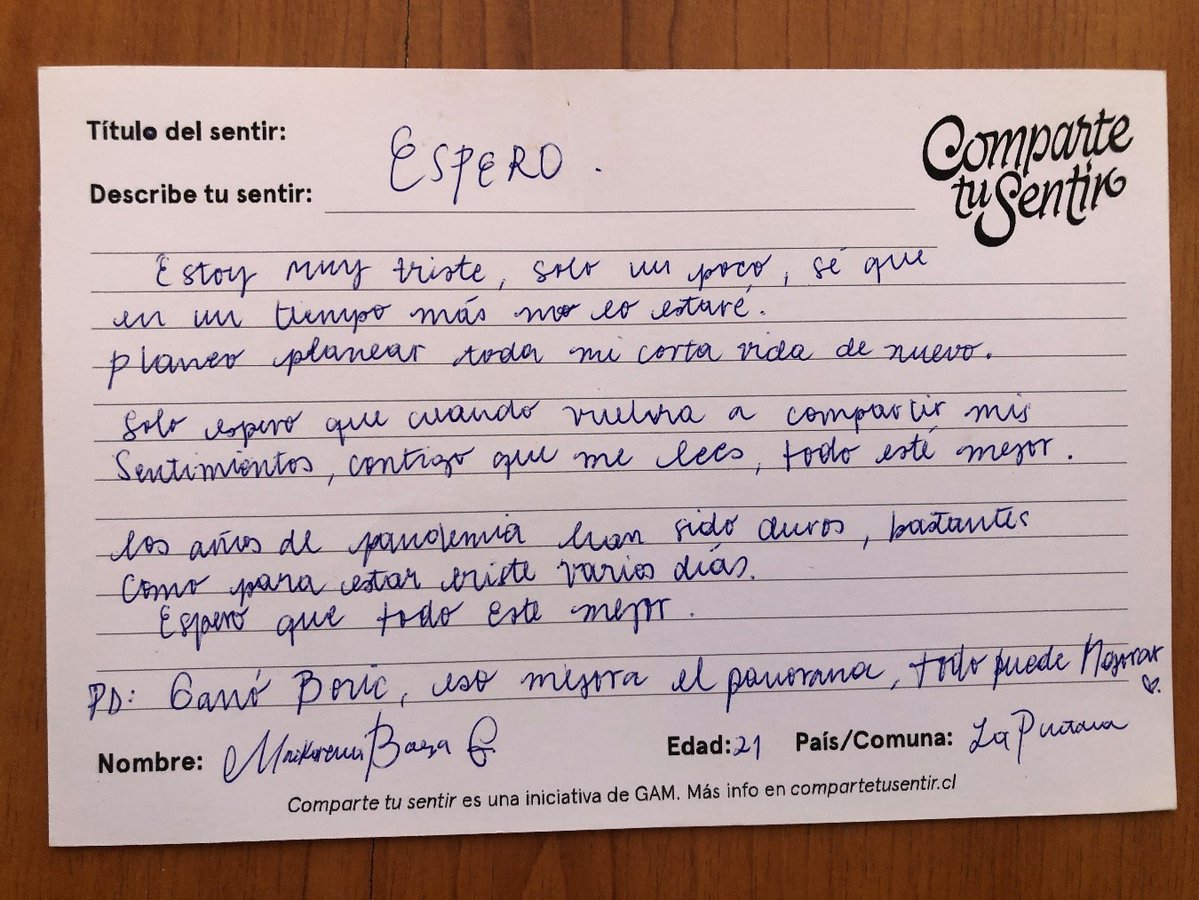 Título del sentir:
ESPERO.
Comparte
tu Sentir
Describe tu sentir:
Estoy muy triste, solo un poco, sé que
en un tiempo más no lo estaré.
Planeo planear toda mi corta vida de nuevo.
Solo espero que cuando vuelva a compartir mis
Sentimientos, contigo que me lees, todo esté mejor.
Los años de pandemia han sido duros, bastantes
Como para estar triste varios días.
Espero que todo este mejor.
PD: Ganó Boric, eso mejora el panorama, todo puede Mejorar
Nombre: Makarena Baeza G. Edad: 21 País/Comuna: La Pintana
Comparte tu sentir es una iniciativa de GAM. Más info en compartetusentir.cl